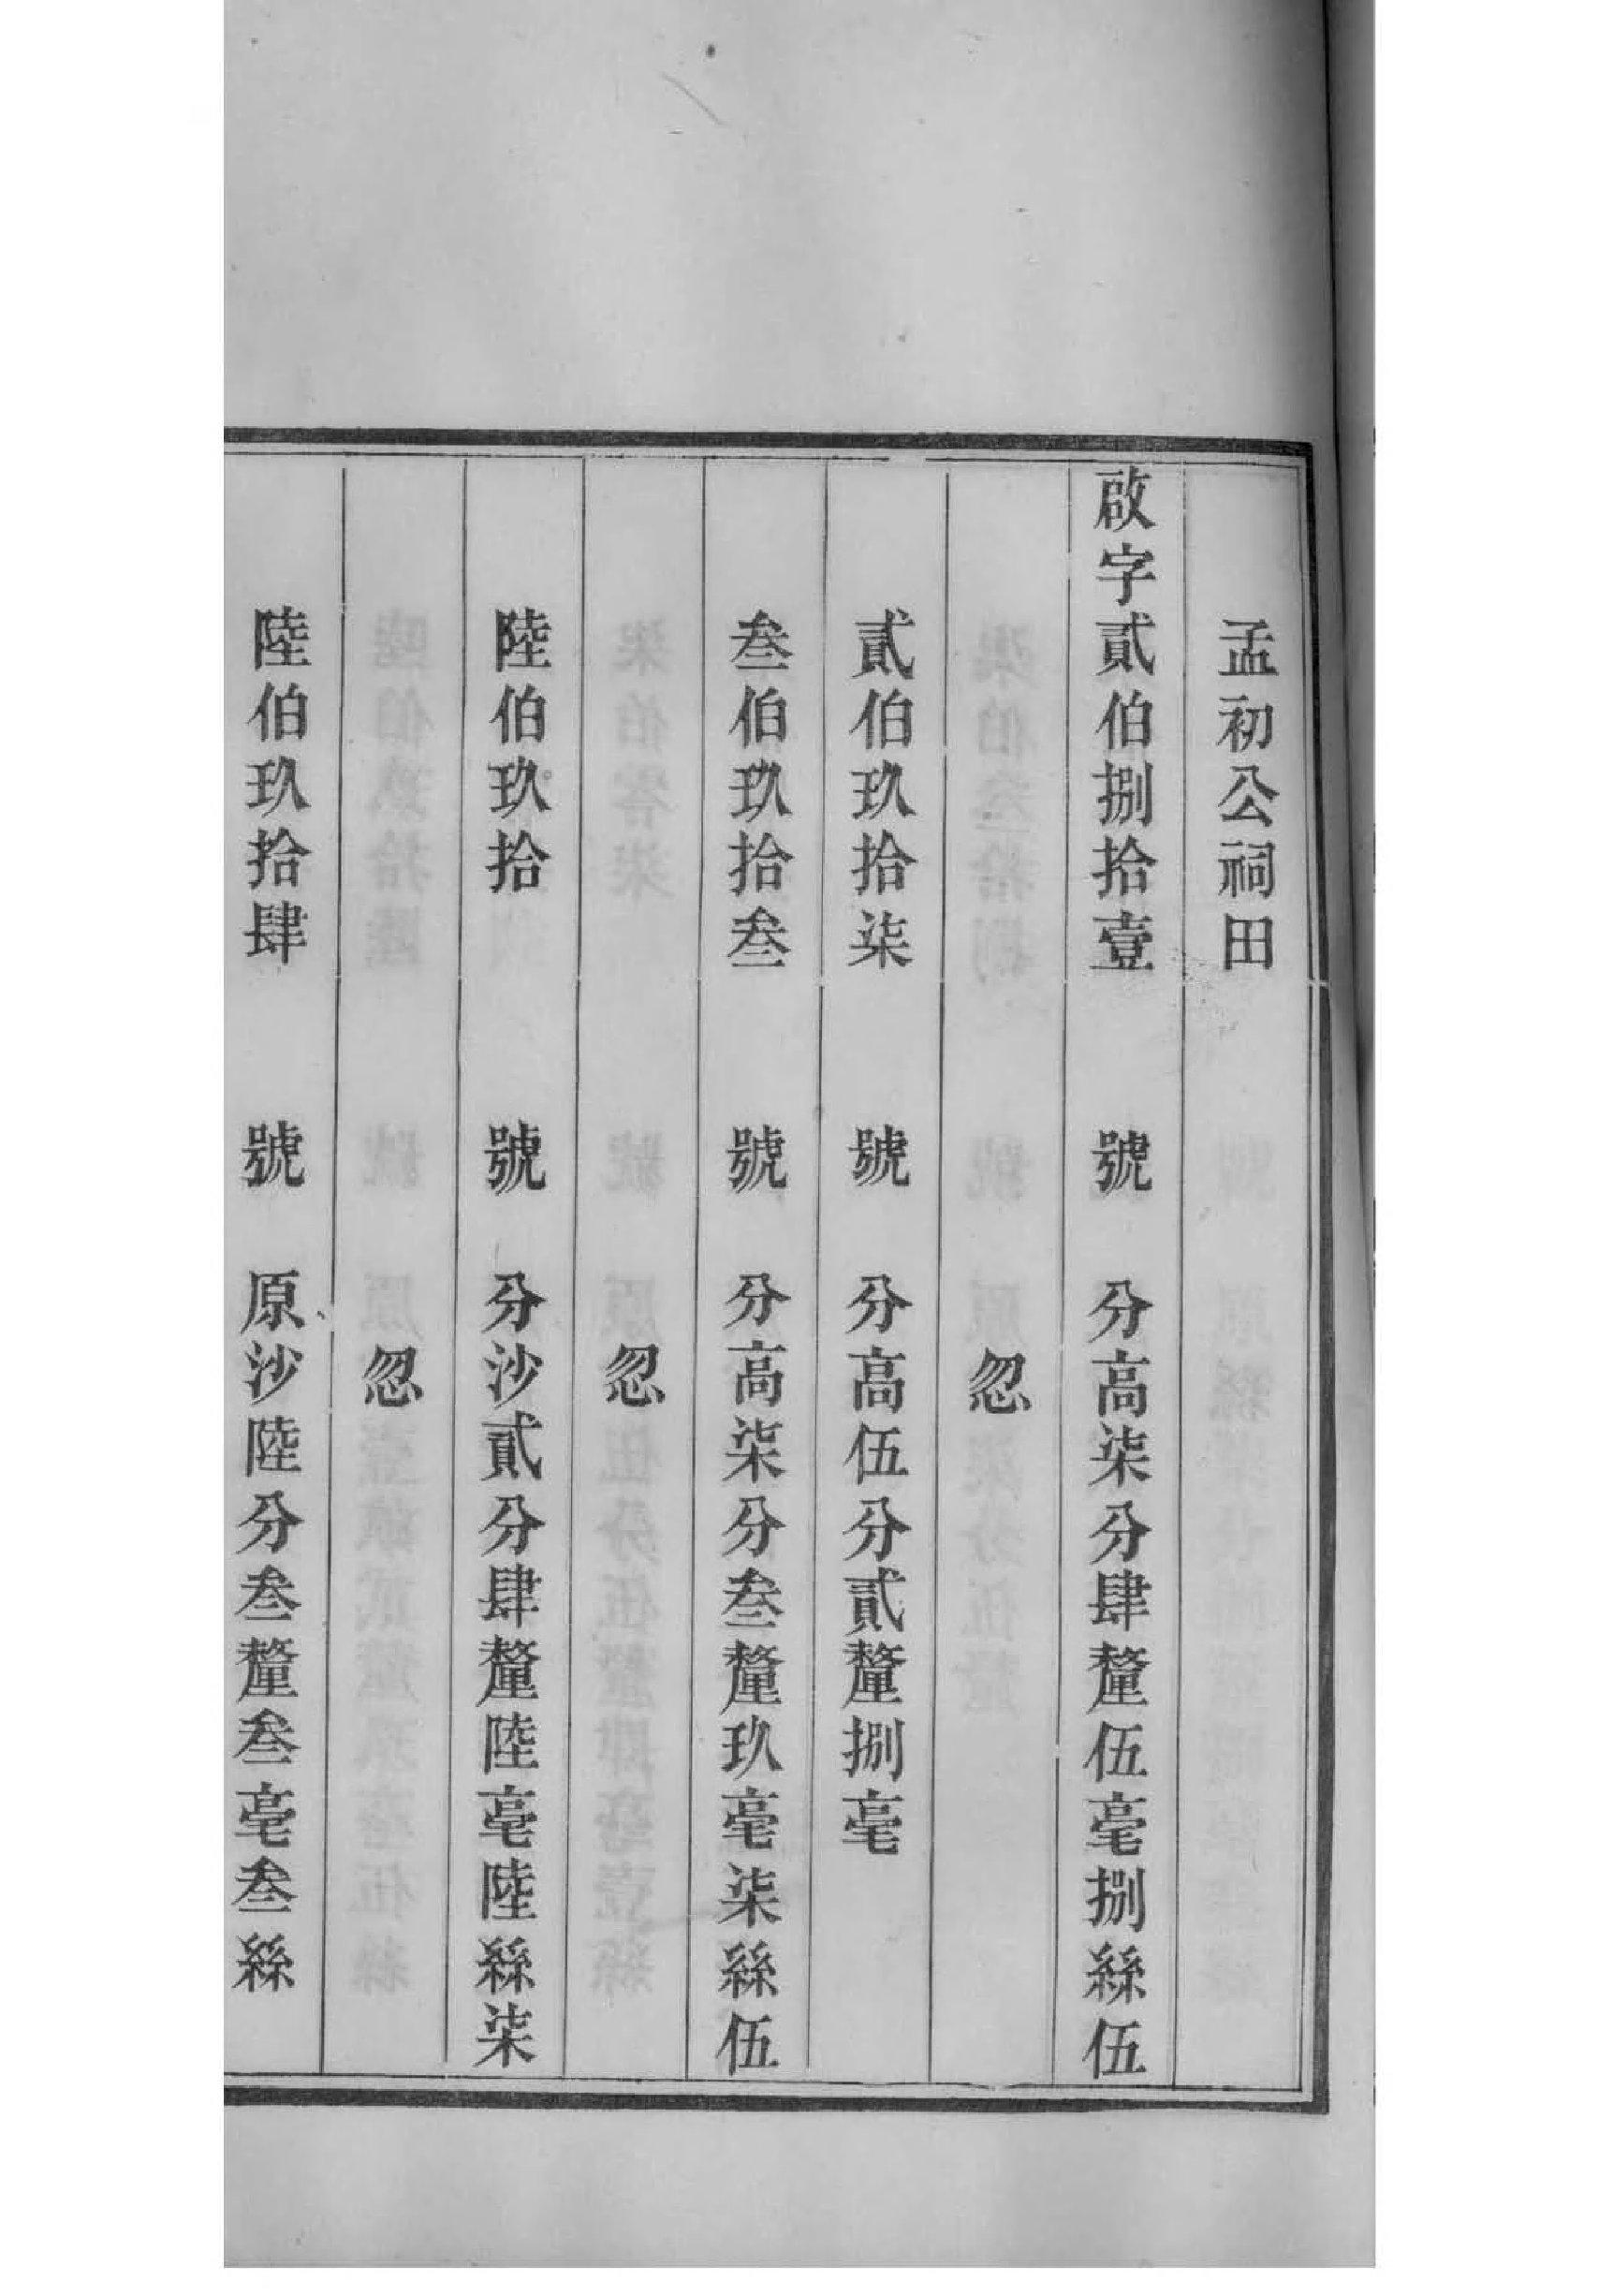 孟初公祠田
啟字貳伯捌拾壹 號 分高柒分肆釐伍毫捌絲伍
忽
貳伯玖拾柒 號 分高伍分貳釐捌毫
叁伯玖拾叁 號 分高柒分叁釐玖毫柒絲伍
忽
陸伯玖拾 號 分沙貳分肆釐陸毫陸絲柒
忽
陸伯玖拾肆 號 原沙陸分叁釐叁毫叁絲